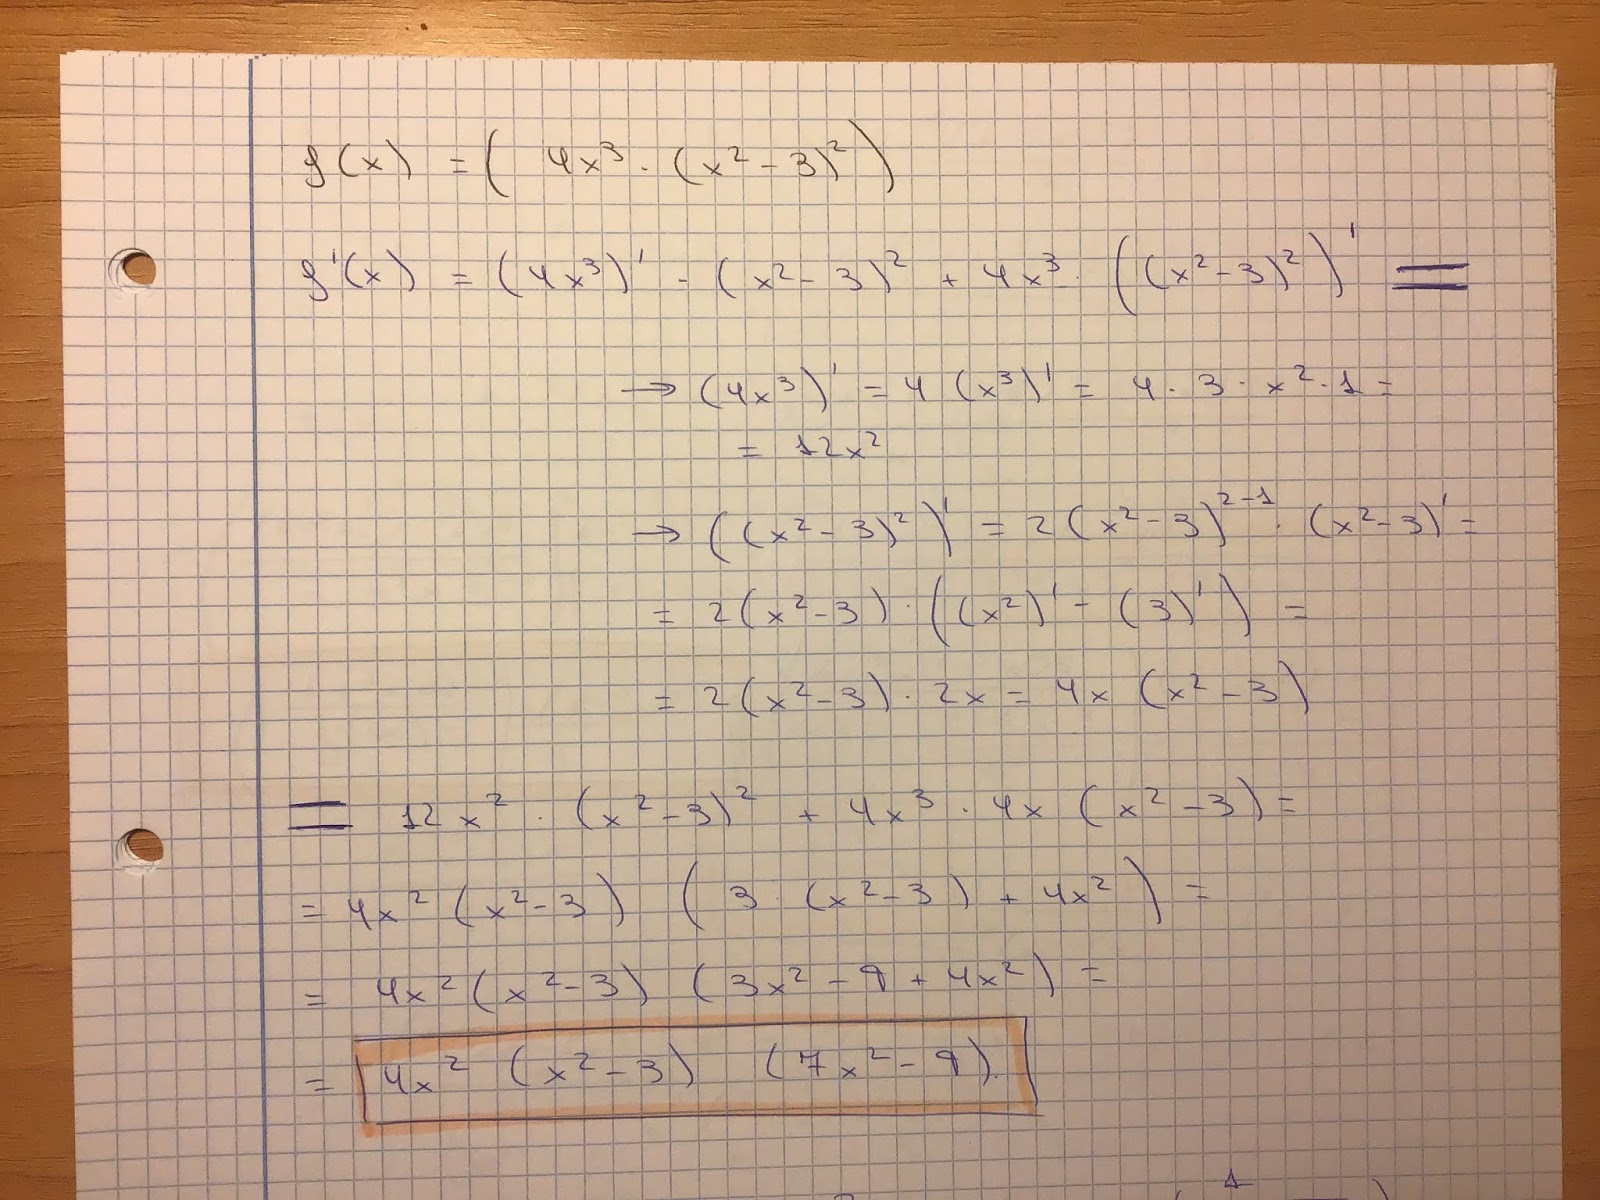 f(x) = ( 4x³ · (x² - 3)² )
f'(x) = (4x³)' · (x² - 3)² + 4x³ · ((x² - 3)²)' =
→ (4x³)' = 4 (x³)' = 4 · 3 · x² · 1 =
= 12x²
→ ((x² - 3)²)' = 2 (x² - 3)²⁻¹ · (x² - 3)' =
= 2 (x² - 3) · ((x²)' - (3)') =
= 2 (x² - 3) · 2x = 4x (x² - 3)
= 12x² · (x² - 3)² + 4x³ · 4x (x² - 3) =
= 4x² (x² - 3) (3 · (x² - 3) + 4x²) =
= 4x² (x² - 3) (3x² - 9 + 4x²) =
= 4x² (x² - 3) (7x² - 9).